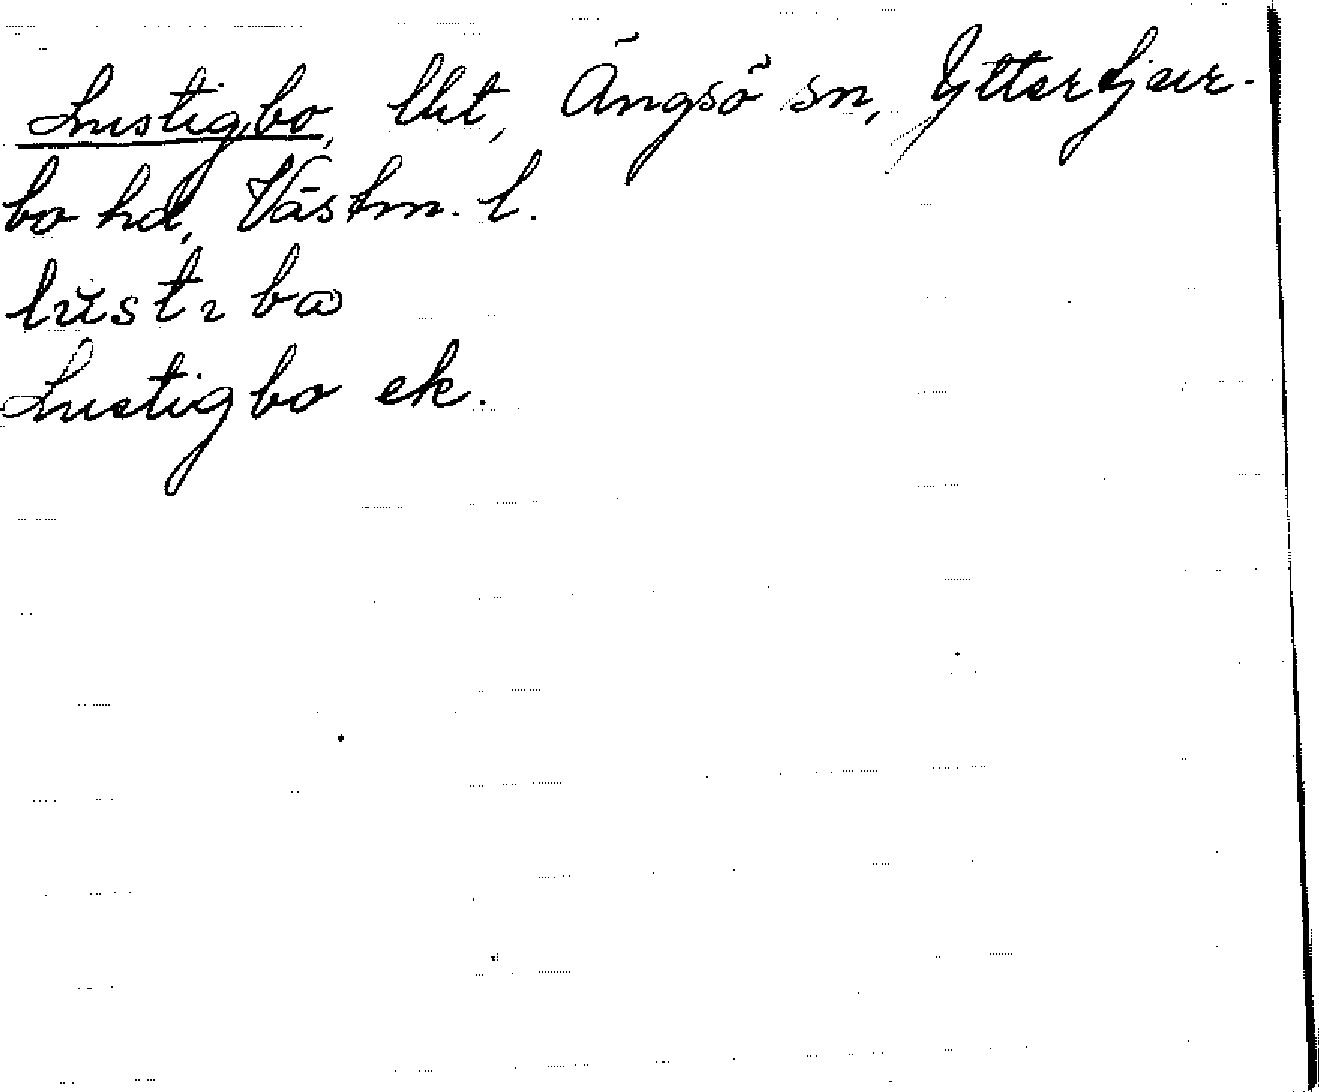 Lustigbo, lht, Ängsö sn, Yttertjur-
bo hd, Västm. l.
Lustigbo ek.